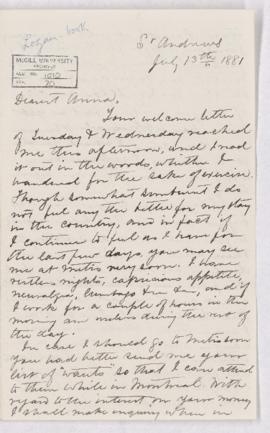 Logan book.
McGILL UNIVERSITY
ARCHIVES
ACC. NO. 1012
REF.
St Andrews
July 13th 1881
Dearest Anna,
Your welcome letter
of Tuesday & Wednesday reached
me this afternoon, and I read
it out in the woods, whither I
wandered for the sake of exercise.
Though somewhat sunburnt I do
not feel any the better for my stay
in the country, and in fact if
I continue to feel as I have for
the last few days, you may see
me at Metis very soon. I have
restless nights, capricious appetite,
neuralgia, lumbago &c &c, and if
I work for a couple of hours in the
morning am useless during the rest of
the day.
In case I should go to Metis soon
you had better send me your
list of wants so that I can attend
to them while in Montreal. With
regard to the interest on your money
I shall make enquiry when in